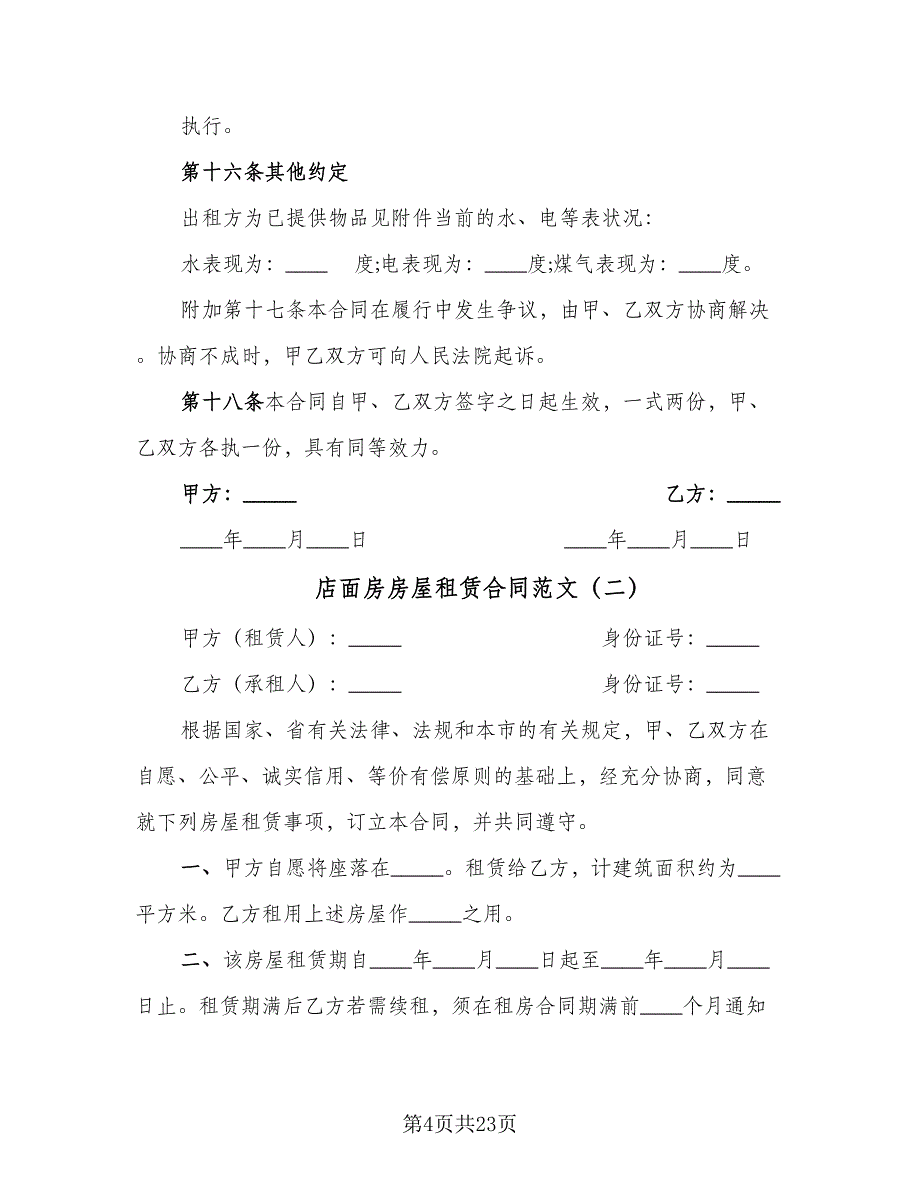 执行。
第十六条其他约定
出租方为已提供物品见附件当前的水、电等表状况：
水表现为：____ 度;电表现为：____度;煤气表现为：____度。
附加第十七条本合同在履行中发生争议，由甲、乙双方协商解决
。协商不成时，甲乙双方可向人民法院起诉。
第十八条本合同自甲、乙双方签字之日起生效，一式两份，甲、
乙双方各执一份，具有同等效力。
甲方：_____ 乙方：_____
____年____月____日 ____年____月____日
店面房房屋租赁合同范文（二）
甲方（租赁人）：_____ 身份证号：_____
乙方（承租人）：_____ 身份证号：_____
根据国家、省有关法律、法规和本市的有关规定，甲、乙双方在
自愿、公平、诚实信用、等价有偿原则的基础上，经充分协商，同意
就下列房屋租赁事项，订立本合同，并共同遵守。
一、甲方自愿将座落在_____。租赁给乙方，计建筑面积约为____
平方米。乙方租用上述房屋作_____之用。
二、该房屋租赁期自____年____月____日起至____年____月____
日止。租赁期满后乙方若需续租，须在租房合同期满前____个月通知
第4页共23页